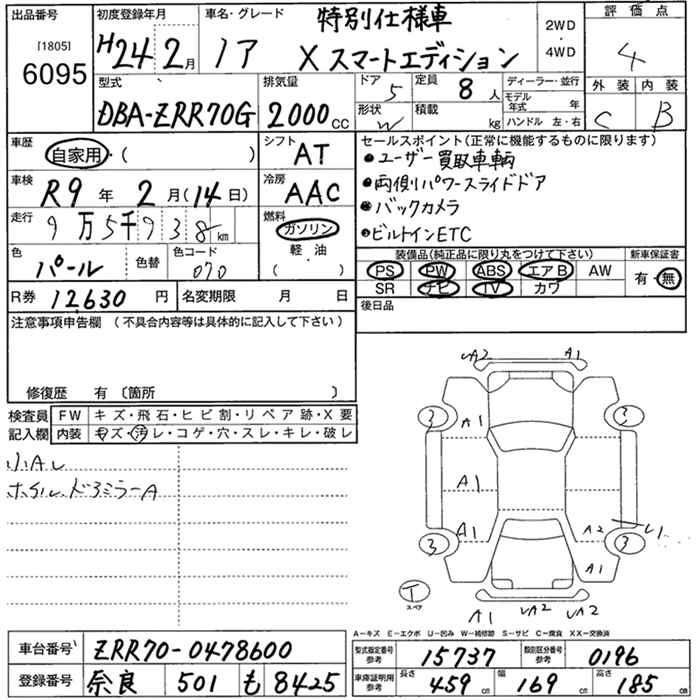 出品番号
[1805]
6095
初度登録年月
H24 2月
車名・グレード
特別仕様車
ノア X スマートエディション
2WD
・
4WD
評価点
4
外装 内装
C B
型式
DBA-ZRR70G
排気量
2000 CC
ドア 5
定員 8 人
形状 W
積載 kg
ディーラー・並行
モデル年式 年
ハンドル 左・右
車歴
自家用・( )
シフト
AT
車検
R9 年 2 月(14 日)
冷房
AAC
走行
9万5千938km
燃料
ガソリン
軽・油
( )
色
パール
色替
色コード
070
R券 12630 円
名変期限 月 日
セールスポイント(正常に機能するものに限ります)
●ユーザー買取車輌
●両側パワースライドドア
●バックカメラ
●ビルトインETC
装備品(純正品に限り丸をつけて下さい)
PS PW ABS エアB AW
SR ナビ TV カワ
新車保証書
有・無
後日品
注意事項申告欄(不具合内容等は具体的に記入して下さい)
修復歴 有〔箇所 〕
検査員記入欄
FW キズ・飛石・ヒビ割・リペア跡・X要
内装 キズ・汚レ・コゲ・穴・スレ・キレ・破レ
小Aレ
ホイル、ドアミラーA
UA2 A1
3 3
A1
A1
A1 A2 U1
3 3
A1
T
スペア
A1 UA2 UA2
A-キズ E-エクボ U-凹み W-補修跡 S-サビ C-腐食 XX-交換済
車台番号 ZRR70-0478600
登録番号 奈良 501 も 8425
型式指定番号 参考 15737
類別区分番号 参考 0196
車庫証明用 参考 長さ 459 cm 幅 169 cm 高さ 185 cm